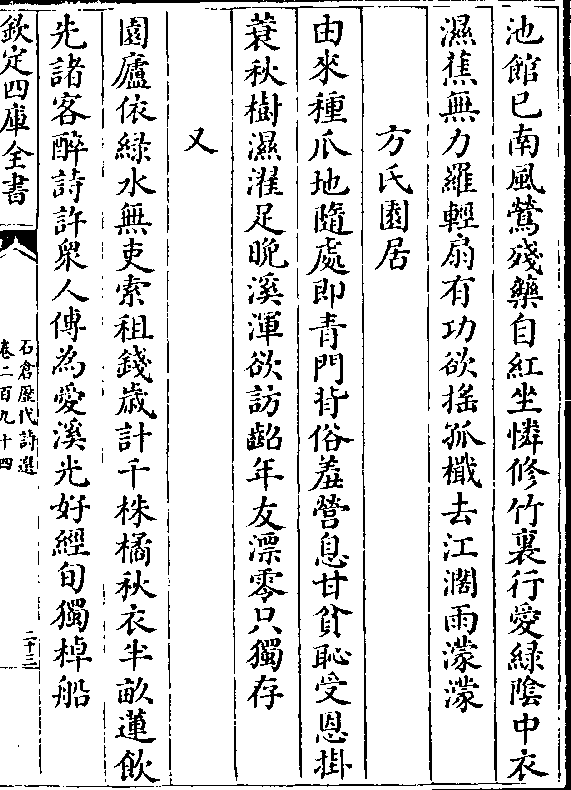 池館已南風鶯殘藥自紅坐憐修竹裏行愛綠陰中衣
濕蕉無力羅輕扇有功欲搖孤檝去江濶雨濛濛
方氏園居
由來種瓜地隨處即青門背俗羞營息甘貧恥受恩掛
蓑秋樹濕濯足晩溪渾欲訪齠年友漂零只獨存
又
園廬依綠水無吏索租錢歲計千株橘秋衣半畝蓮飲
先諸客醉詩許衆人傳為愛溪光好經旬獨棹船
欽定四庫全書
石倉歷代詩選
卷二百九十四
二十三